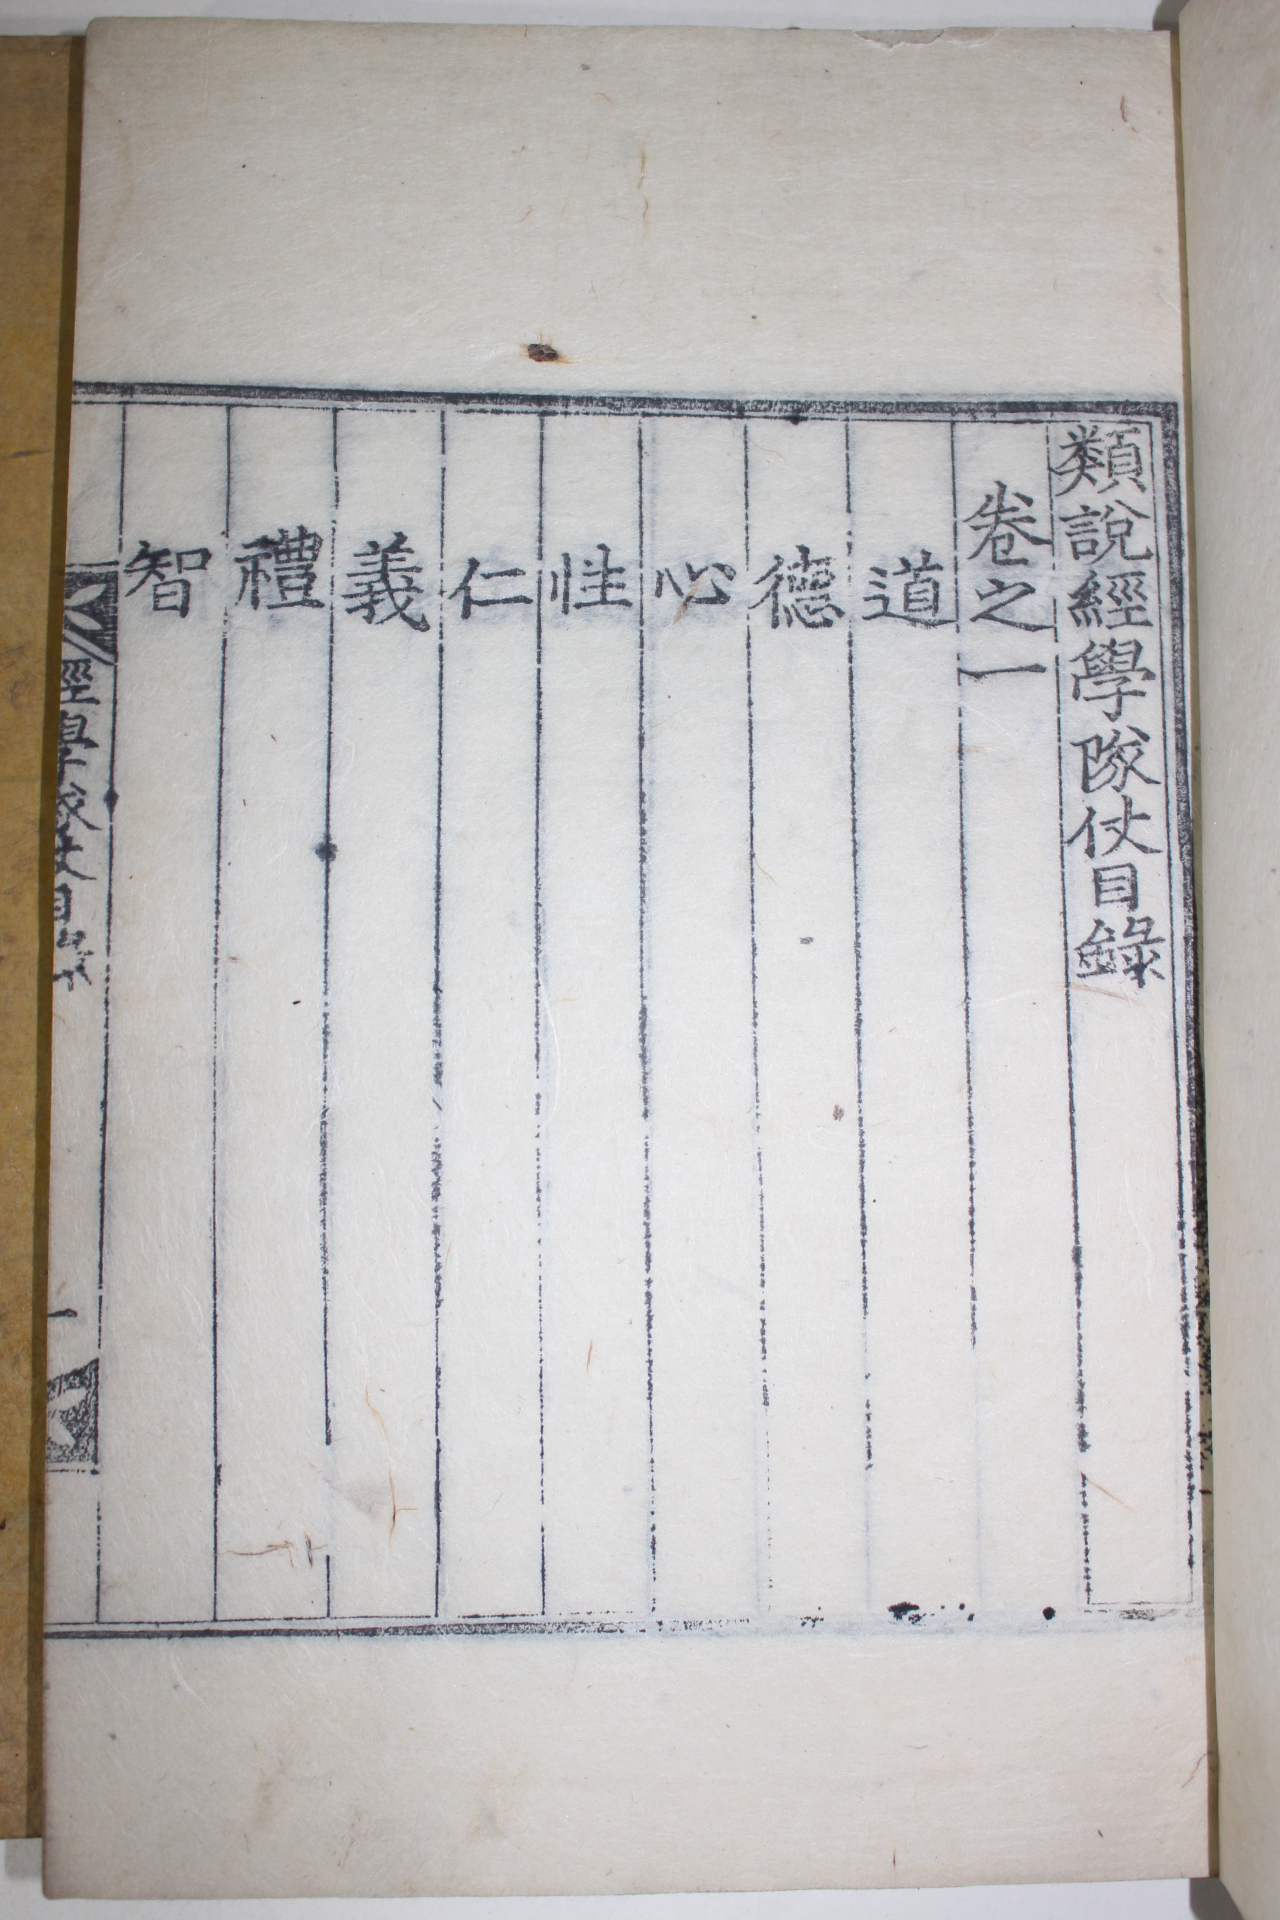 類說經學隊仗目錄
卷之一
道
德
心
性
仁
義
禮
智
經學隊仗目錄
一